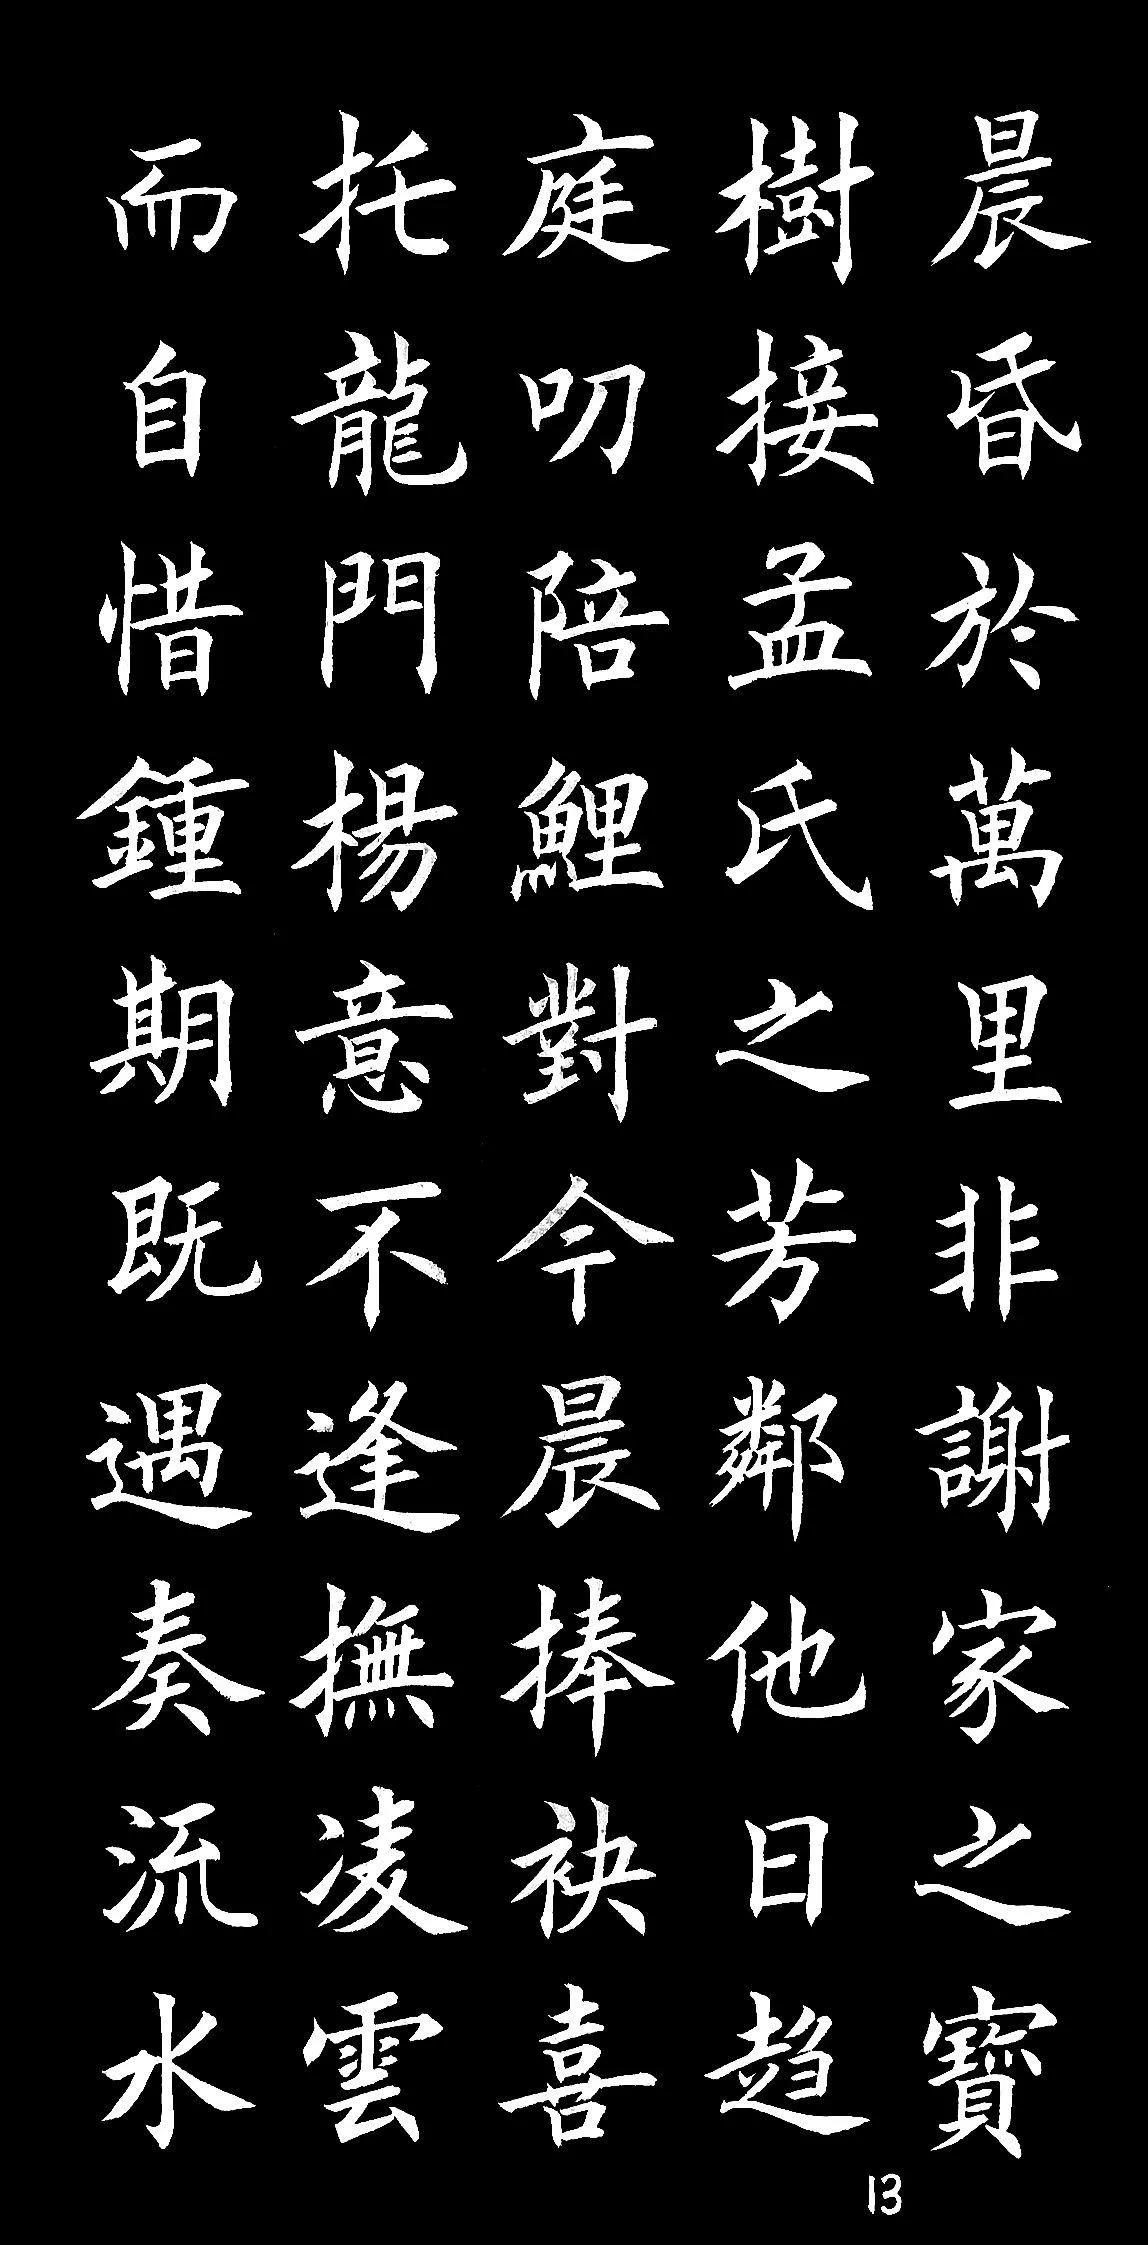 晨昏於萬里非謝家之寶
樹接孟氏之芳鄰他日趨
庭叨陪鯉對今晨捧袂喜
托龍門楊意不逢撫凌雲
而自惜鍾期既遇奏流水
13